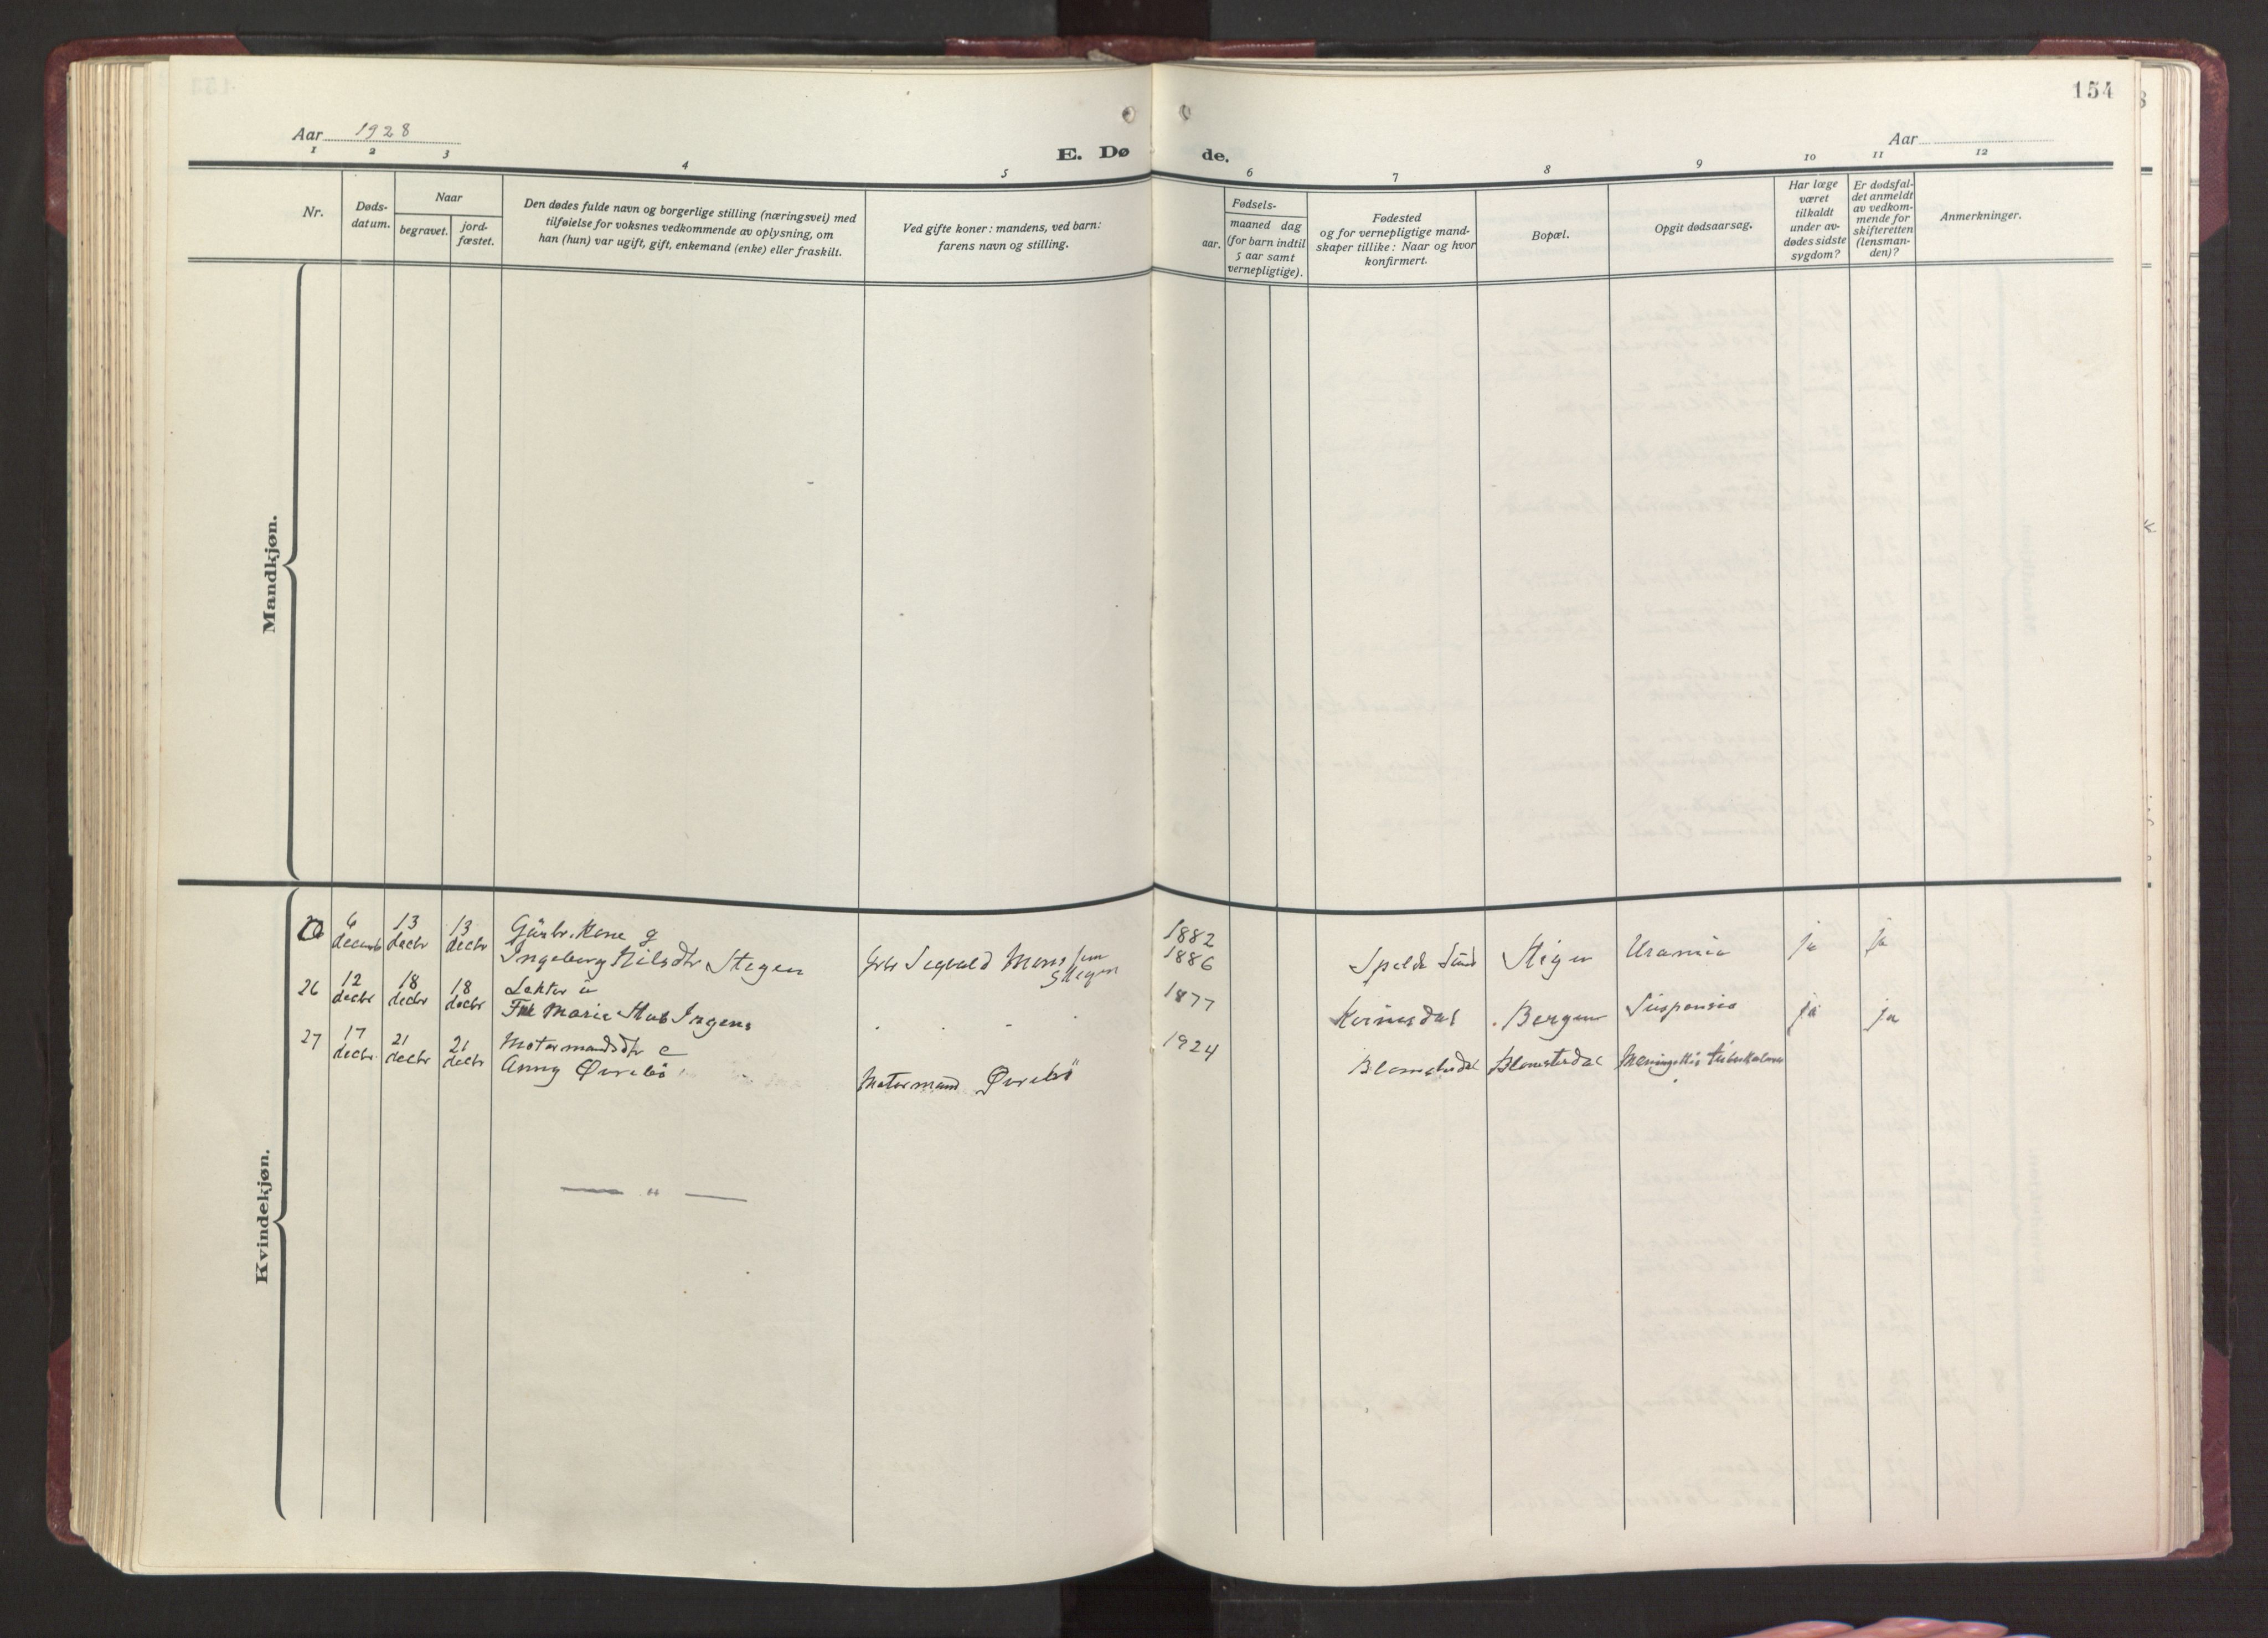 154
Aar 1928
Aar
E. Døde.
1 2 3 4 5 6 7 8 9 10 11 12
Nr.
Døds-
datum.
Naar
begravet.
jord-
fæstet.
Den dødes fulde navn og borgerlige stilling (næringsvei) med
tilføielse for voksnes vedkommende av oplysning, om
han (hun) var ugift, gift, enkemand (enke) eller fraskilt.
Ved gifte koner: mandens, ved barn:
farens navn og stilling.
Fødsels-
aar.
maaned dag
(for barn indtil
5 aar samt
vernepligtige).
Fødested
og for vernepligtige mand-
skaper tillike: Naar og hvor
konfirmert.
Bopæl.
Opgit dødsaarsag.
Har læge
været
tilkaldt
under av-
dødes sidste
sygdom?
Er dødsfal-
det anmeldt
av vedkom-
mende for
skifteretten
(lensman-
den)?
Anmerkninger.
Mandkjøn.
Kvindekjøn.
6 13 13 Gårbr. Kone g 1882
decemb decbr decbr Ingeborg Nilsdtr Stegen Sigvald Monssen Stegen 1886 Spelde Sund Uramia ja ja
26 12 18 18 Lektor u 1877
decbr decbr decbr Frk Marie Stub Irgens Bergen Suspensio ja ja
27 17 21 21 Motormandsdtr e 1924
decbr decbr decbr Anny Øvrebö Motormand Øvrebö Blomsterdal Blomsterdal Meningitis tuberkulosa
— " —